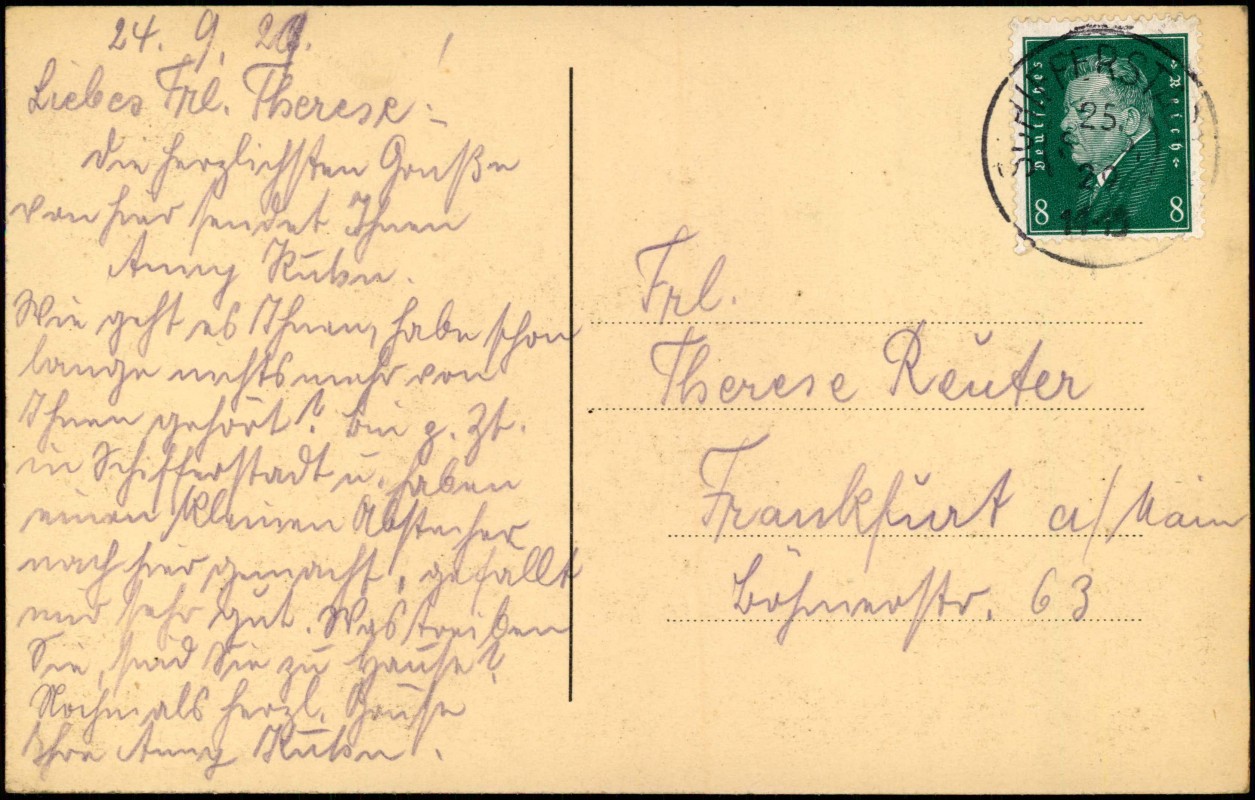 24. 9. 29.
Liebes Frl. Therese!
Die herzlichsten Grüße
von hier sendet Ihnen
Anny
Wie geht es Ihnen, habe schon
lange nichts mehr von
Ihnen gehört? bin z. Zt.
in Schifferstadt u. haben
einen kleinen Abstecher
nach hier gemacht, gefällt
mir sehr gut. Was treiben
Sie, sind Sie zu Hause?
Nochmals herzl. Grüsse
Ihre Anny
Deutsches Reich
8 8
SCHIFFERSTADT
25.
29
11-12
Frl.
Therese Reuter
Frankfurt a/Main
Böhmerstr. 63